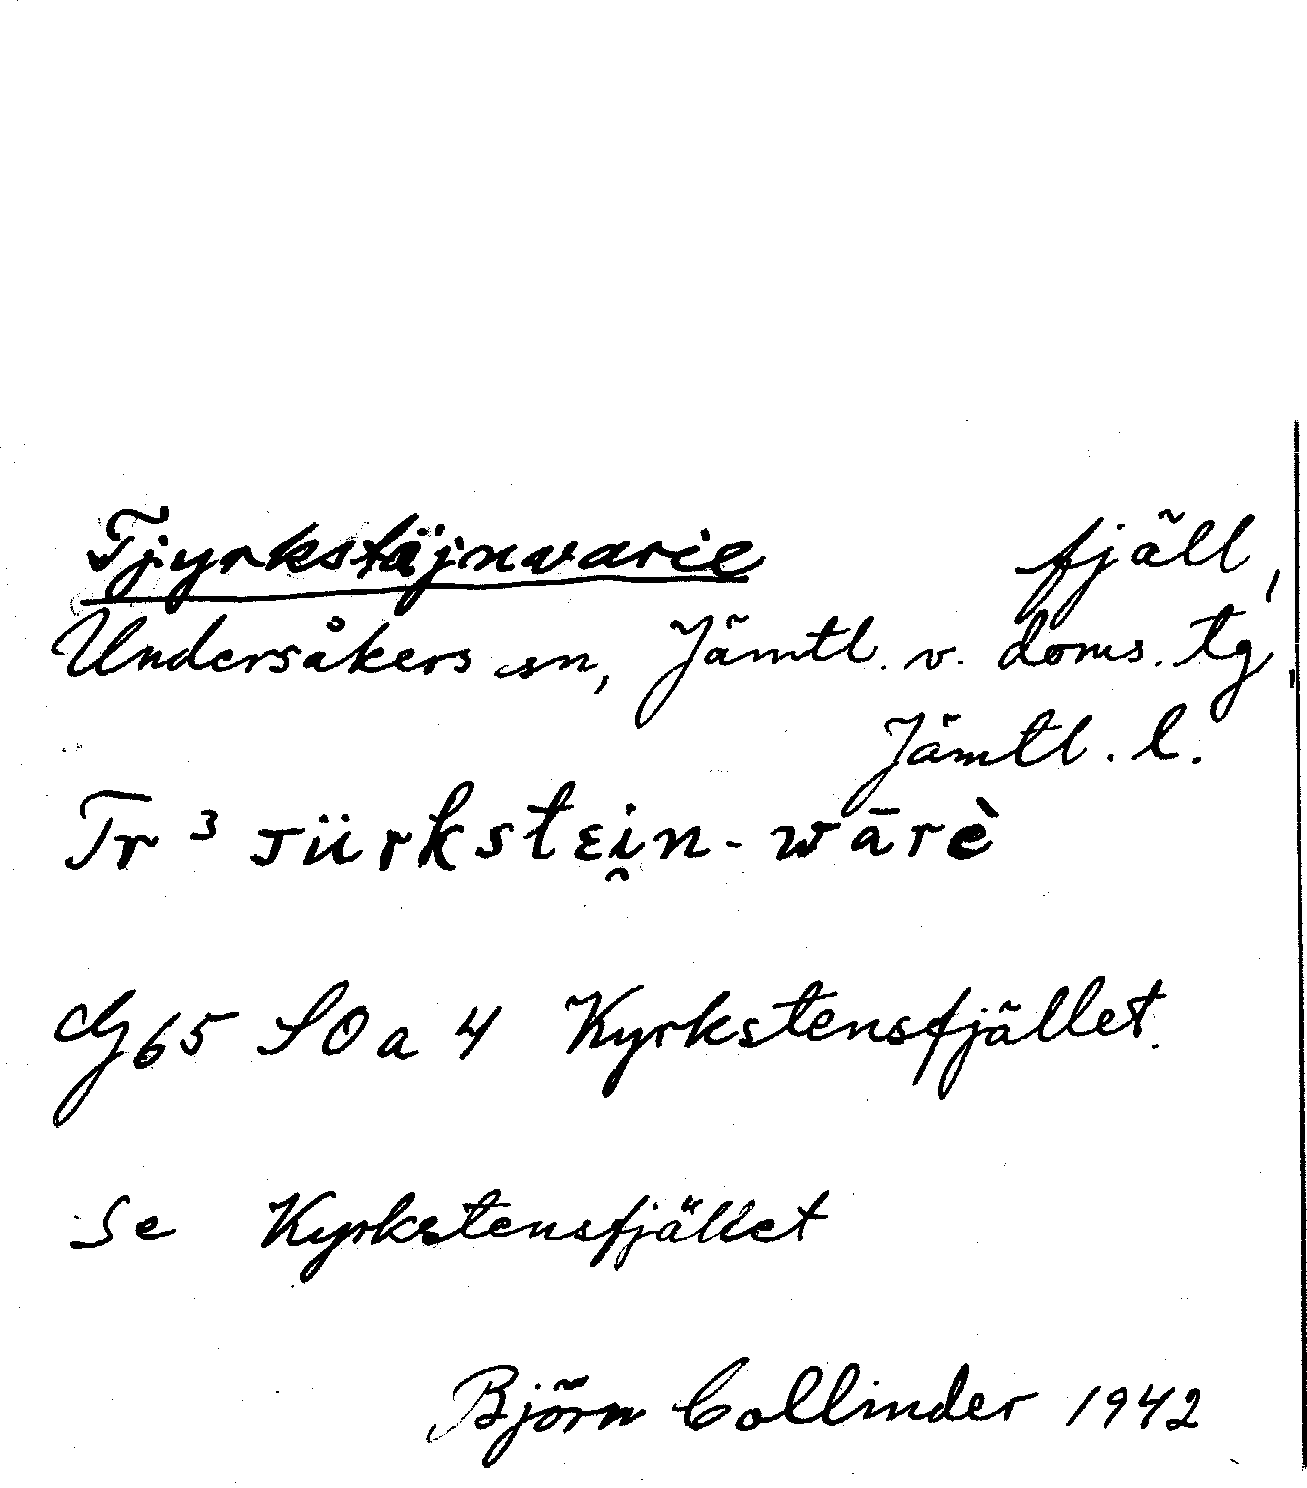 Tjyrkstäjnvarie fjäll,
Undersåkers sn, Jämtl. v. doms. tg.
Jämtl. l.
Tr 3 ᴊürkstɛi̯n-wārè
G65 SO a 4 Kyrkstensfjället.
Se Kyrkstensfjället
Björn Collinder 1942